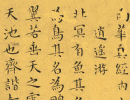 南華真經內
逍遙遊
北冥有魚其
為鳥其名為鵬
翼若垂天之雲
天池也齊諧